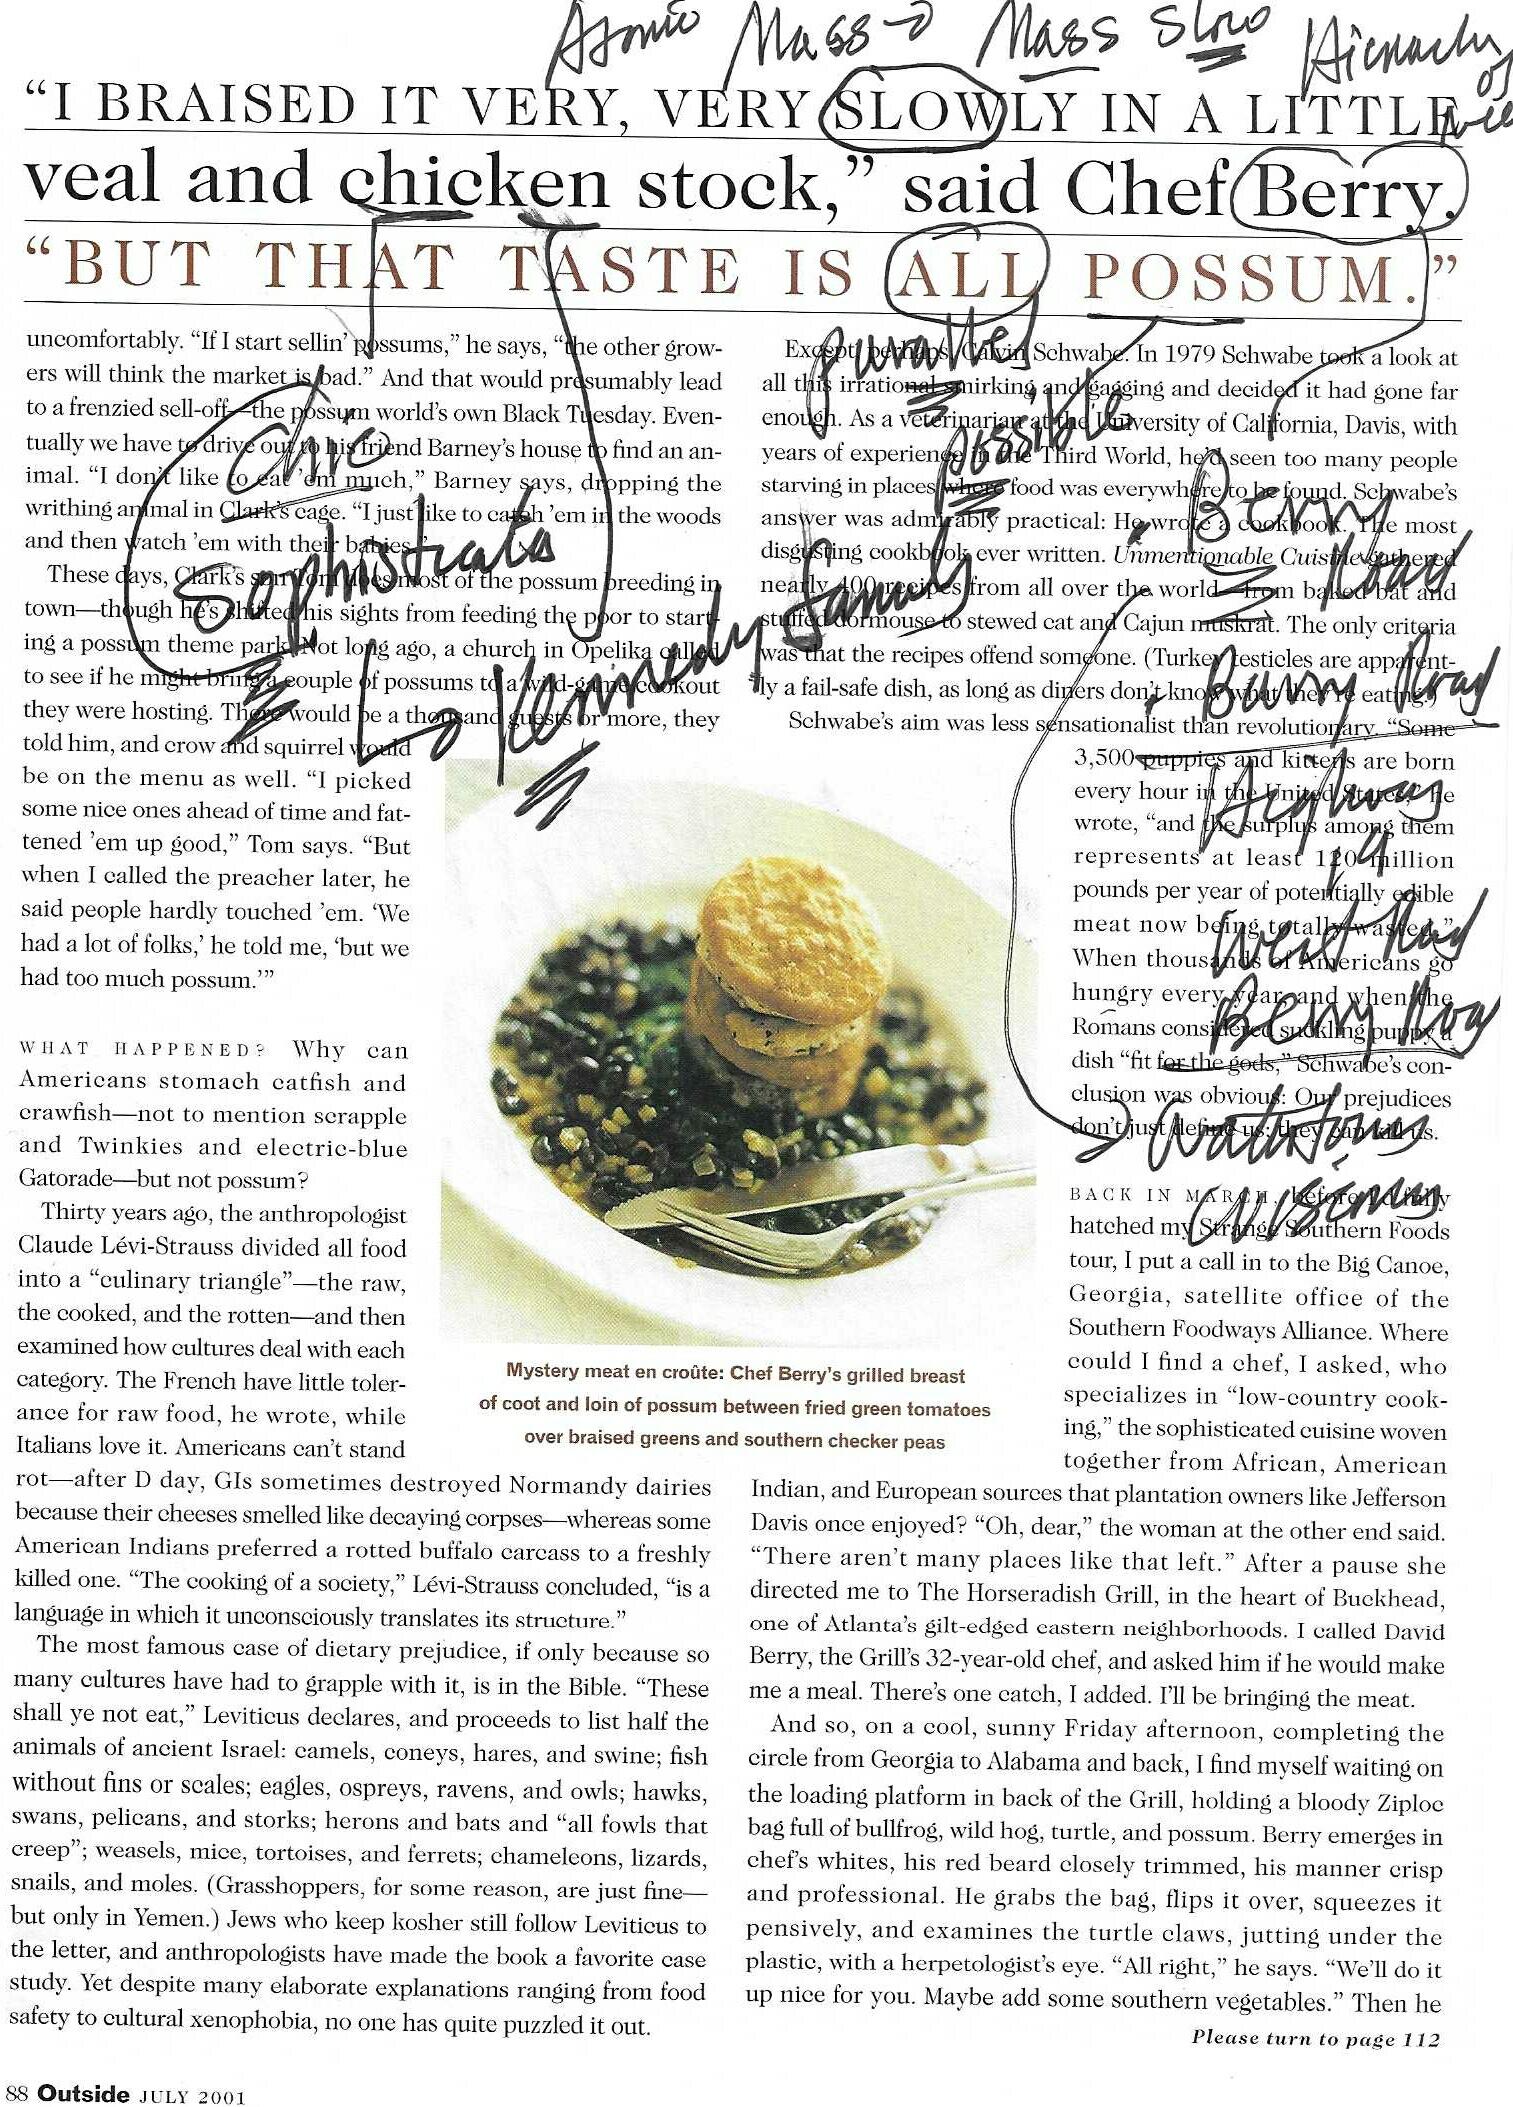 Atomic Mass Mass Slow Hierarchy of
"I BRAISED IT VERY, VERY SLOWLY IN A LITTLE
veal and chicken stock," said Chef Berry.
"BUT THAT TASTE IS ALL POSSUM."
uncomfortably. "If I start sellin' possums," he says, "the other grow-
ers will think the market is bad." And that would presumably lead
to a frenzied sell-off—the possum world's own Black Tuesday. Even-
tually we have to drive out to his friend Barney's house to find an an-
imal. "I don't like to eat 'em much," Barney says, dropping the
writhing animal in Clark's cage. "I just like to catch 'em in the woods
and then watch 'em with their babies."
These days, Clark's son Tom does most of the possum breeding in
town—though he's shifted his sights from feeding the poor to start-
ing a possum theme park. Not long ago, a church in Opelika called
to see if he might bring a couple of possums to a wild-game cookout
they were hosting. There would be a thousand guests or more, they
told him, and crow and squirrel would
be on the menu as well. "I picked
some nice ones ahead of time and fat-
tened 'em up good," Tom says. "But
when I called the preacher later, he
said people hardly touched 'em. 'We
had a lot of folks,' he told me, 'but we
had too much possum.'"
WHAT HAPPENED? Why can
Americans stomach catfish and
crawfish—not to mention scrapple
and Twinkies and electric-blue
Gatorade—but not possum?
Thirty years ago, the anthropologist
Claude Lévi-Strauss divided all food
into a "culinary triangle"—the raw,
the cooked, and the rotten—and then
examined how cultures deal with each
category. The French have little toler-
ance for raw food, he wrote, while
Italians love it. Americans can't stand
rot—after D day, GIs sometimes destroyed Normandy dairies
because their cheeses smelled like decaying corpses—whereas some
American Indians preferred a rotted buffalo carcass to a freshly
killed one. "The cooking of a society," Lévi-Strauss concluded, "is a
language in which it unconsciously translates its structure."
The most famous case of dietary prejudice, if only because so
many cultures have had to grapple with it, is in the Bible. "These
shall ye not eat," Leviticus declares, and proceeds to list half the
animals of ancient Israel: camels, coneys, hares, and swine; fish
without fins or scales; eagles, ospreys, ravens, and owls; hawks,
swans, pelicans, and storks; herons and bats and "all fowls that
creep"; weasels, mice, tortoises, and ferrets; chameleons, lizards,
snails, and moles. (Grasshoppers, for some reason, are just fine—
but only in Yemen.) Jews who keep kosher still follow Leviticus to
the letter, and anthropologists have made the book a favorite case
study. Yet despite many elaborate explanations ranging from food
safety to cultural xenophobia, no one has quite puzzled it out.
Chic
Sophisticata
Kennedy Family
Mystery meat en croûte: Chef Berry's grilled breast
of coot and loin of possum between fried green tomatoes
over braised greens and southern checker peas
Except, perhaps, Calvin Schwabe. In 1979 Schwabe took a look at
all this irrational smirking and gagging and decided it had gone far
enough. As a veterinarian at the University of California, Davis, with
years of experience in the Third World, he'd seen too many people
starving in places where food was everywhere to be found. Schwabe's
answer was admirably practical: He wrote a cookbook. The most
disgusting cookbook ever written. Unmentionable Cuisine gathered
nearly 400 recipes from all over the world—from baked bat and
stuffed dormouse to stewed cat and Cajun muskrat. The only criteria
was that the recipes offend someone. (Turkey testicles are apparent-
ly a fail-safe dish, as long as diners don't know what they're eating.)
Schwabe's aim was less sensationalist than revolutionary. "Some
3,500 puppies and kittens are born
every hour in the United States," he
wrote, "and the surplus among them
represents at least 120 million
pounds per year of potentially edible
meat now being totally wasted."
When thousands of Americans go
hungry every year, and when the
Romans considered suckling puppy a
dish "fit for the gods," Schwabe's con-
clusion was obvious: Our prejudices
don't just define us: they can kill us.
BACK IN MARCH, before I'd fully
hatched my Strange Southern Foods
tour, I put a call in to the Big Canoe,
Georgia, satellite office of the
Southern Foodways Alliance. Where
could I find a chef, I asked, who
specializes in "low-country cook-
ing," the sophisticated cuisine woven
together from African, American
Indian, and European sources that plantation owners like Jefferson
Davis once enjoyed? "Oh, dear," the woman at the other end said.
"There aren't many places like that left." After a pause she
directed me to The Horseradish Grill, in the heart of Buckhead,
one of Atlanta's gilt-edged eastern neighborhoods. I called David
Berry, the Grill's 32-year-old chef, and asked him if he would make
me a meal. There's one catch, I added. I'll be bringing the meat.
And so, on a cool, sunny Friday afternoon, completing the
circle from Georgia to Alabama and back, I find myself waiting on
the loading platform in back of the Grill, holding a bloody Ziploc
bag full of bullfrog, wild hog, turtle, and possum. Berry emerges in
chef's whites, his red beard closely trimmed, his manner crisp
and professional. He grabs the bag, flips it over, squeezes it
pensively, and examines the turtle claws, jutting under the
plastic, with a herpetologist's eye. "All right," he says. "We'll do it
up nice for you. Maybe add some southern vegetables." Then he
Please turn to page 112
possible
Berry
Road
Barry Road
Highway
9
West Road
Berry Road
88 Outside JULY 2001